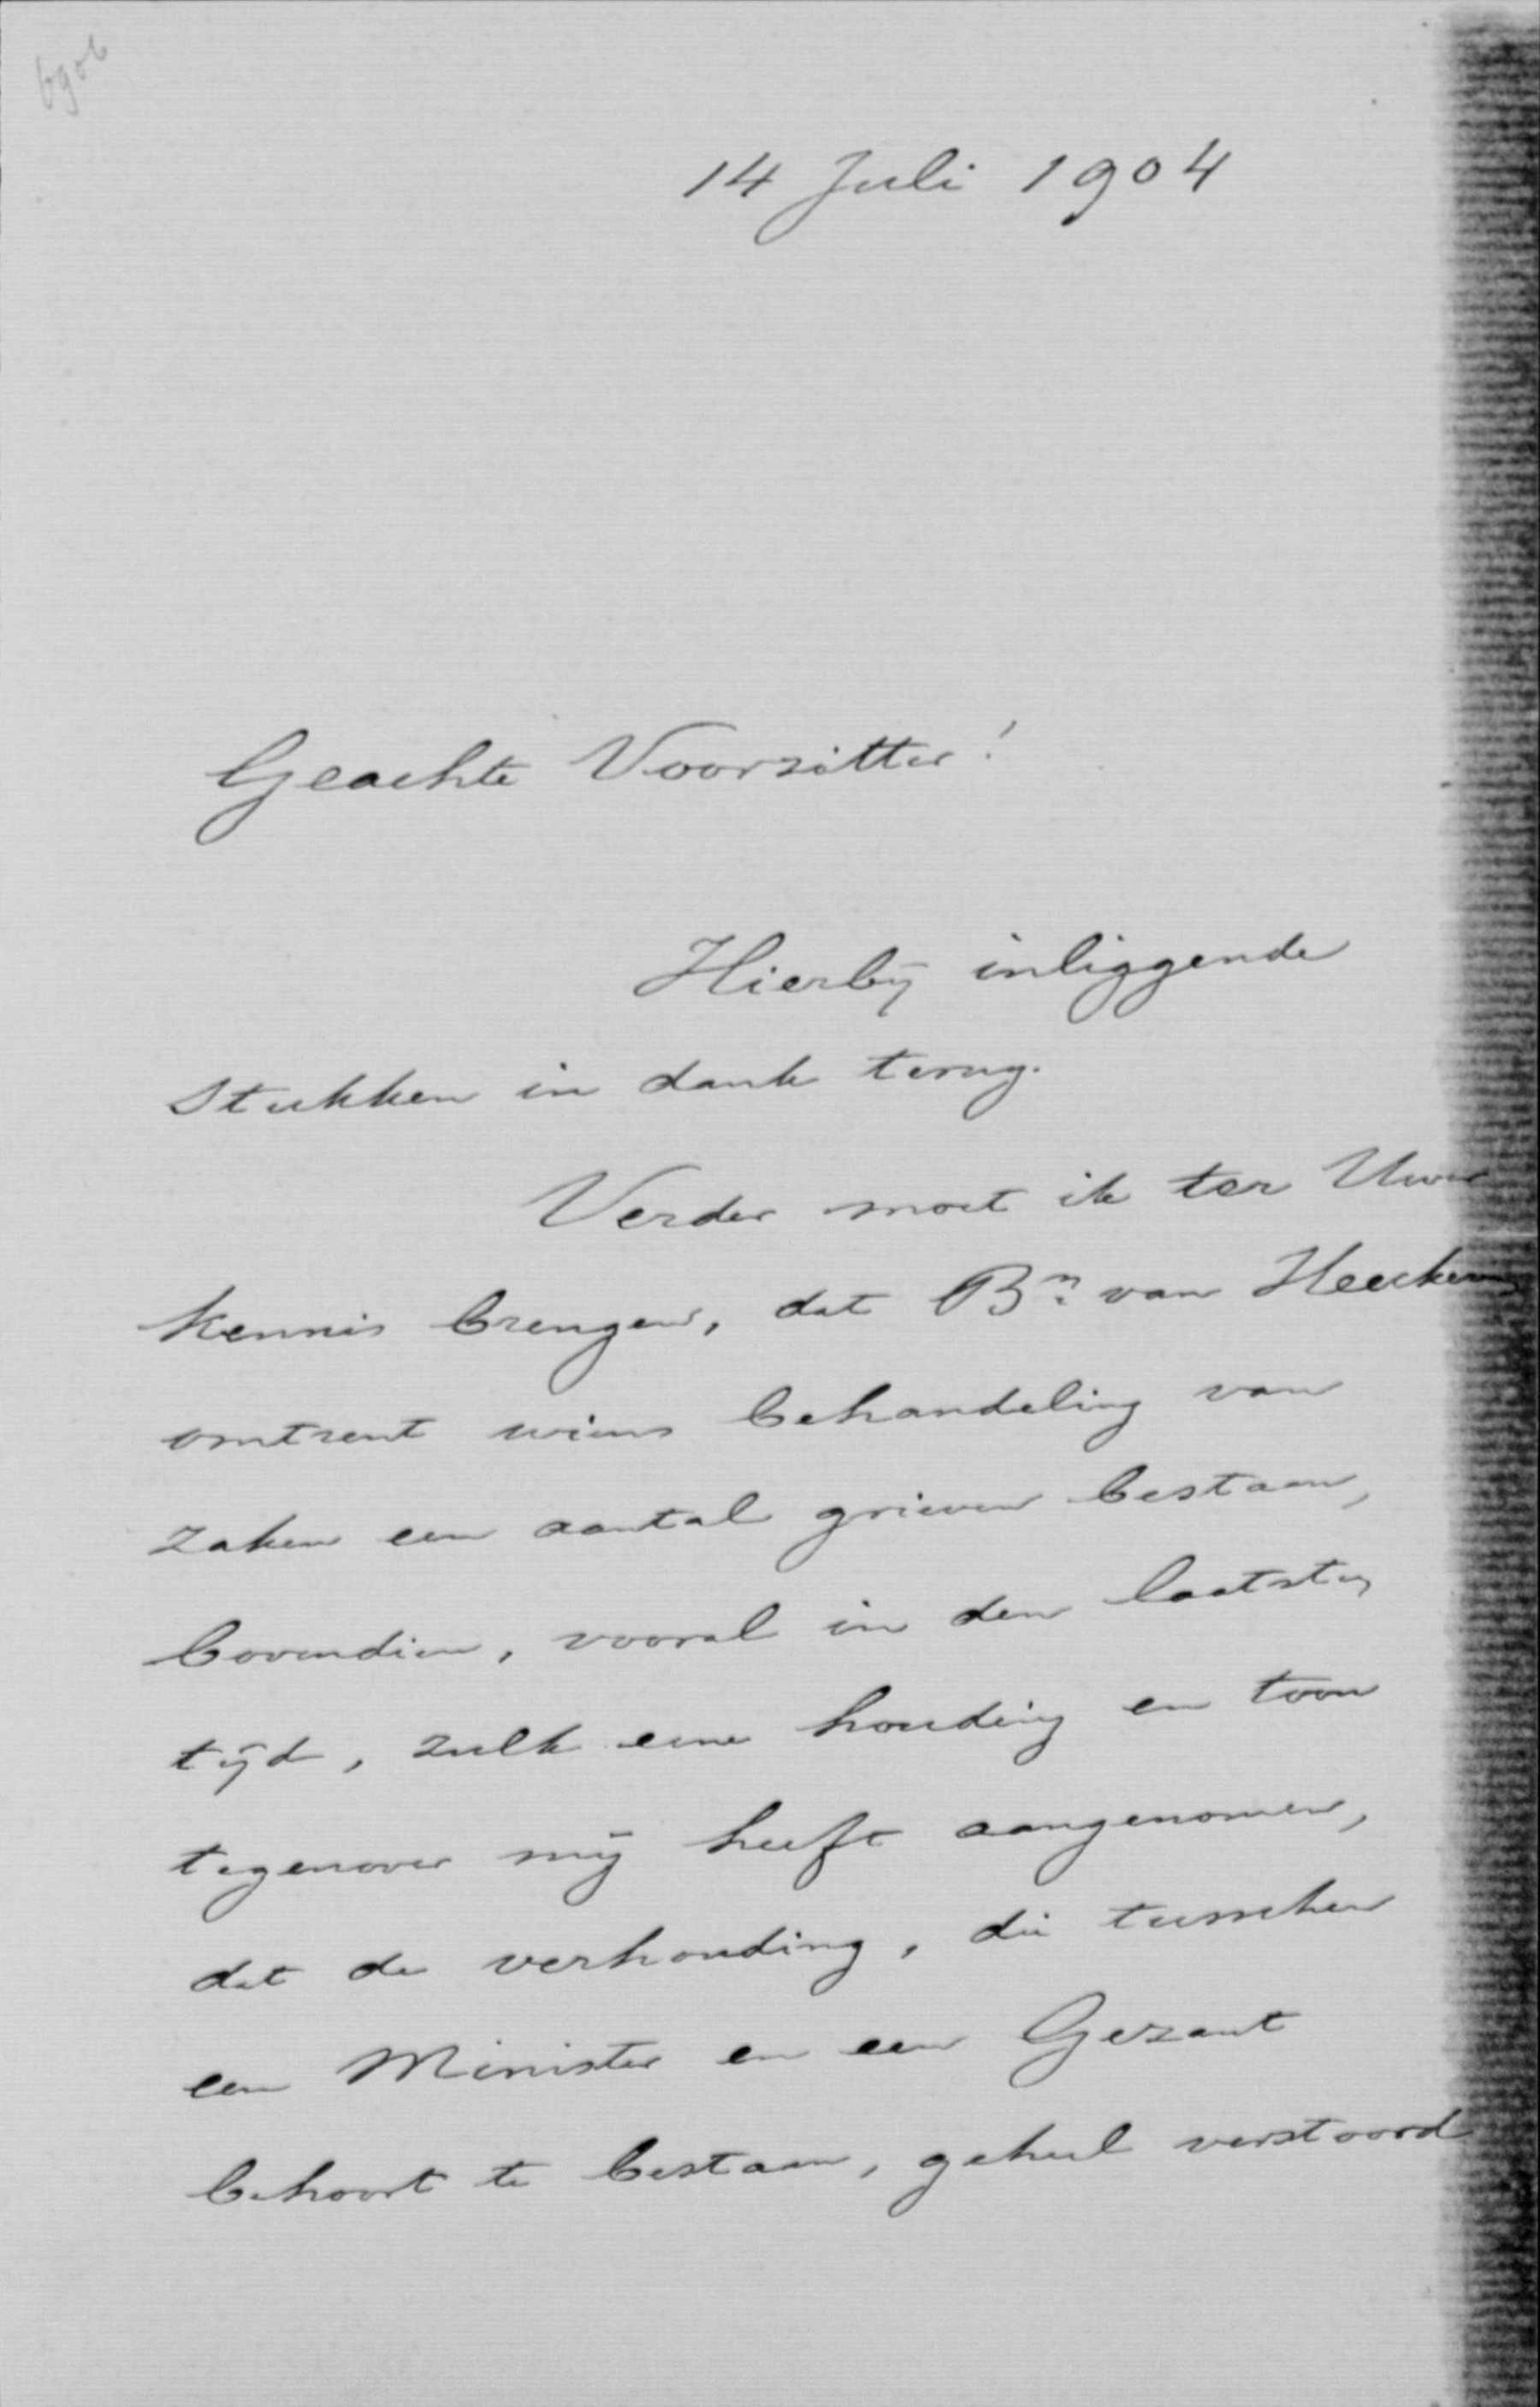 6906
14 Juli 1904
Geachte Voorzitter!
Hierbij inliggende
stukken in dank terug.
Verder moet ik ter Uwer
kennis brengen, dat Bn. van Heeckeren
omtrent wiens behandeling van
zaken een aantal grieven bestaan,
bovendien, vooral in den laatsten
tijd, zulk eene houding en toon
tegenover mij heeft aangenomen,
dat de verhouding, die tusschen
een Minister en een Gezant
behoort te bestaan, geheel verstoord